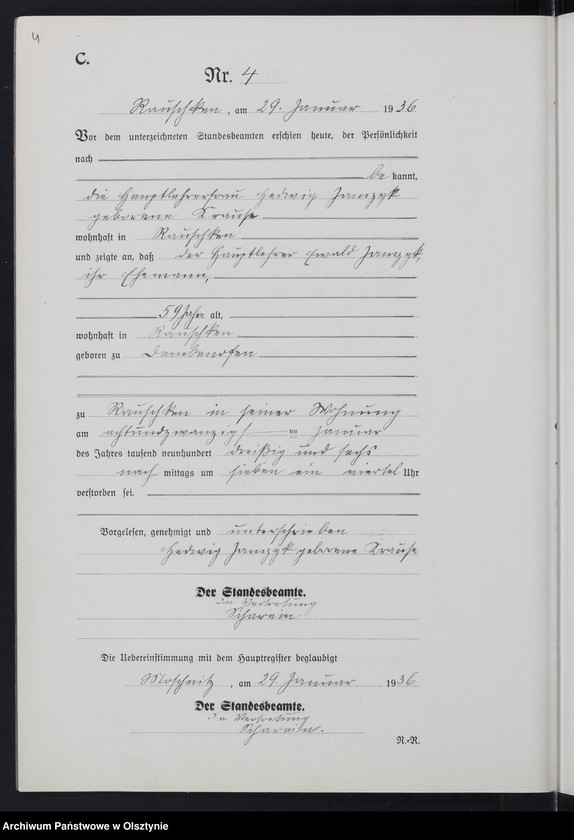 4
C.
Nr. 4
Rauschken, am 29. Januar 1936
Vor dem unterzeichneten Standesbeamten erschien heute, der Persönlichkeit
nach
be kannt,
die Hauptlehrerfrau Hedwig Jamzyk
geborene Krause
wohnhaft in Rauschken
und zeigte an, daß der Hauptlehrer Ewald Jamzyk,
ihr Ehemann,
59 Jahre alt,
wohnhaft in Rauschken
geboren zu Dembenofen
zu Rauschken in seiner Wohnung
am achtundzwanzigsten Januar
des Jahres tausend neunhundert dreißig und sechs
nach mittags um sieben ein viertel Uhr
verstorben sei.
Vorgelesen, genehmigt und unterschrieben
Hedwig Jamzyk geborene Krause
Der Standesbeamte.
In Vertretung
Scharein
Die Uebereinstimmung mit dem Hauptregister beglaubigt
Moschnitz, am 29. Januar 1936
Der Standesbeamte.
In Vertretung
Scharein.
R.-R.
Archiwum Państwowe w Olsztynie